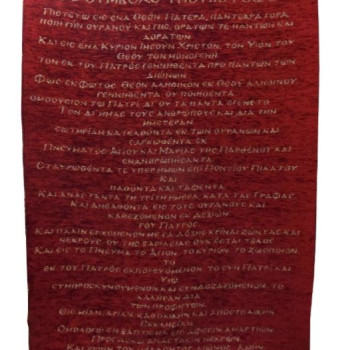 ΣΥΜΒΟΛΟ ΤΗΣ ΠΙΣΤΕΩΣ
ΠΙΣΤΕΥΩ ΕΙΣ ΕΝΑ ΘΕΟΝ ΠΑΤΕΡΑ, ΠΑΝΤΟΚΡΑΤΟΡΑ
ΠΟΙΗΤΗΝ ΟΥΡΑΝΟΥ ΚΑΙ ΓΗΣ, ΟΡΑΤΩΝ ΤΕ ΠΑΝΤΩΝ ΚΑΙ
ΑΟΡΑΤΩΝ
ΚΑΙ ΕΙΣ ΕΝΑ ΚΥΡΙΟΝ ΙΗΣΟΥΝ ΧΡΙΣΤΟΝ, ΤΟΝ ΥΙΟΝ ΤΟΥ
ΘΕΟΥ ΤΟΝ ΜΟΝΟΓΕΝΗ
ΤΟΝ ΕΚ ΤΟΥ ΠΑΤΡΟΣ ΓΕΝΝΗΘΕΝΤΑ ΠΡΟ ΠΑΝΤΩΝ ΤΩΝ
ΑΙΩΝΩΝ
ΦΩΣ ΕΚ ΦΩΤΟΣ ΘΕΟΝ ΑΛΗΘΙΝΟΝ ΕΚ ΘΕΟΥ ΑΛΗΘΙΝΟΥ
ΓΕΝΝΗΘΕΝΤΑ ΟΥ ΠΟΙΗΘΕΝΤΑ
ΟΜΟΟΥΣΙΟΝ ΤΩ ΠΑΤΡΙ ΔΙ ΟΥ ΤΑ ΠΑΝΤΑ ΕΓΕΝΕΤΟ
ΤΟΝ ΔΙ ΗΜΑΣ ΤΟΥΣ ΑΝΘΡΩΠΟΥΣ ΚΑΙ ΔΙΑ ΤΗΝ
ΗΜΕΤΕΡΑΝ
ΣΩΤΗΡΙΑΝ ΚΑΤΕΛΘΟΝΤΑ ΕΚ ΤΩΝ ΟΥΡΑΝΩΝ ΚΑΙ
ΣΑΡΚΩΘΕΝΤΑ ΕΚ
ΠΝΕΥΜΑΤΟΣ ΑΓΙΟΥ ΚΑΙ ΜΑΡΙΑΣ ΤΗΣ ΠΑΡΘΕΝΟΥ ΚΑΙ
ΕΝΑΝΘΡΩΠΗΣΑΝΤΑ
ΣΤΑΥΡΩΘΕΝΤΑ ΤΕ ΥΠΕΡ ΗΜΩΝ ΕΠΙ ΠΟΝΤΙΟΥ ΠΙΛΑΤΟΥ
ΚΑΙ
ΠΑΘΟΝΤΑ ΚΑΙ ΤΑΦΕΝΤΑ
ΚΑΙ ΑΝΑΣΤΑΝΤΑ ΤΗ ΤΡΙΤΗ ΗΜΕΡΑ ΚΑΤΑ ΤΑΣ ΓΡΑΦΑΣ
ΚΑΙ ΑΝΕΛΘΟΝΤΑ ΕΙΣ ΤΟΥΣ ΟΥΡΑΝΟΥΣ ΚΑΙ
ΚΑΘΕΖΟΜΕΝΟΝ ΕΚ ΔΕΞΙΩΝ
ΤΟΥ ΠΑΤΡΟΣ
ΚΑΙ ΠΑΛΙΝ ΕΡΧΟΜΕΝΟΝ ΜΕΤΑ ΔΟΞΗΣ ΚΡΙΝΑΙ ΖΩΝΤΑΣ ΚΑΙ
ΝΕΚΡΟΥΣ ΟΥ ΤΗΣ ΒΑΣΙΛΕΙΑΣ ΟΥΚ ΕΣΤΑΙ ΤΕΛΟΣ
ΚΑΙ ΕΙΣ ΤΟ ΠΝΕΥΜΑ ΤΟ ΑΓΙΟΝ, ΤΟ ΚΥΡΙΟΝ ΤΟ ΖΩΟΠΟΙΟΝ
ΤΟ
ΕΚ ΤΟΥ ΠΑΤΡΟΣ ΕΚΠΟΡΕΥΟΜΕΝΟΝ ΤΟ ΣΥΝ ΠΑΤΡΙ ΚΑΙ
ΥΙΩ
ΣΥΜΠΡΟΣΚΥΝΟΥΜΕΝΟΝ ΚΑΙ ΣΥΝΔΟΞΑΖΟΜΕΝΟΝ, ΤΟ
ΛΑΛΗΣΑΝ ΔΙΑ
ΤΩΝ ΠΡΟΦΗΤΩΝ.
ΕΙΣ ΜΙΑΝ, ΑΓΙΑΝ, ΚΑΘΟΛΙΚΗΝ ΚΑΙ ΑΠΟΣΤΟΛΙΚΗΝ
ΕΚΚΛΗΣΙΑΝ
ΟΜΟΛΟΓΩ ΕΝ ΒΑΠΤΙΣΜΑ ΕΙΣ ΑΦΕΣΙΝ ΑΜΑΡΤΙΩΝ
ΠΡΟΣΔΟΚΩ ΑΝΑΣΤΑΣΙΝ ΝΕΚΡΩΝ
ΚΑΙ ΖΩΗΝ ΤΟΥ ΜΕΛΛΟΝΤΟΣ ΑΙΩΝΟΣ. ΑΜΗΝ